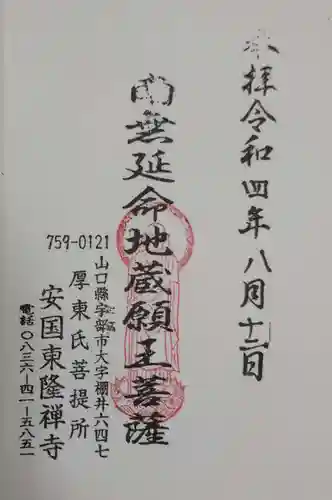 奉拝 令和四年八月十二日
南無延命地蔵願王菩薩
759-0121
山口縣宇部市大字棚井六四七
厚東氏菩提所
安国東隆禅寺
電話〇八三六-四一-五八五一